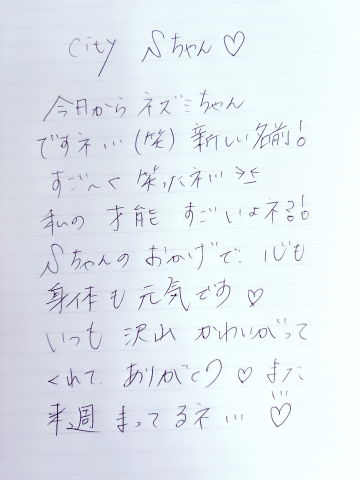 city Sちゃん♡
今日から ネズミちゃん
ですネ…(笑) 新しい名前!
すご〜く 笑ったネ… ><
私の 才能 すごいよネ!?!
Sちゃんの おかげで 心も
身体も 元気です♡
いつも 沢山 かわいがって
くれて ありがとう♡ また
来週 まってるネ… ♡